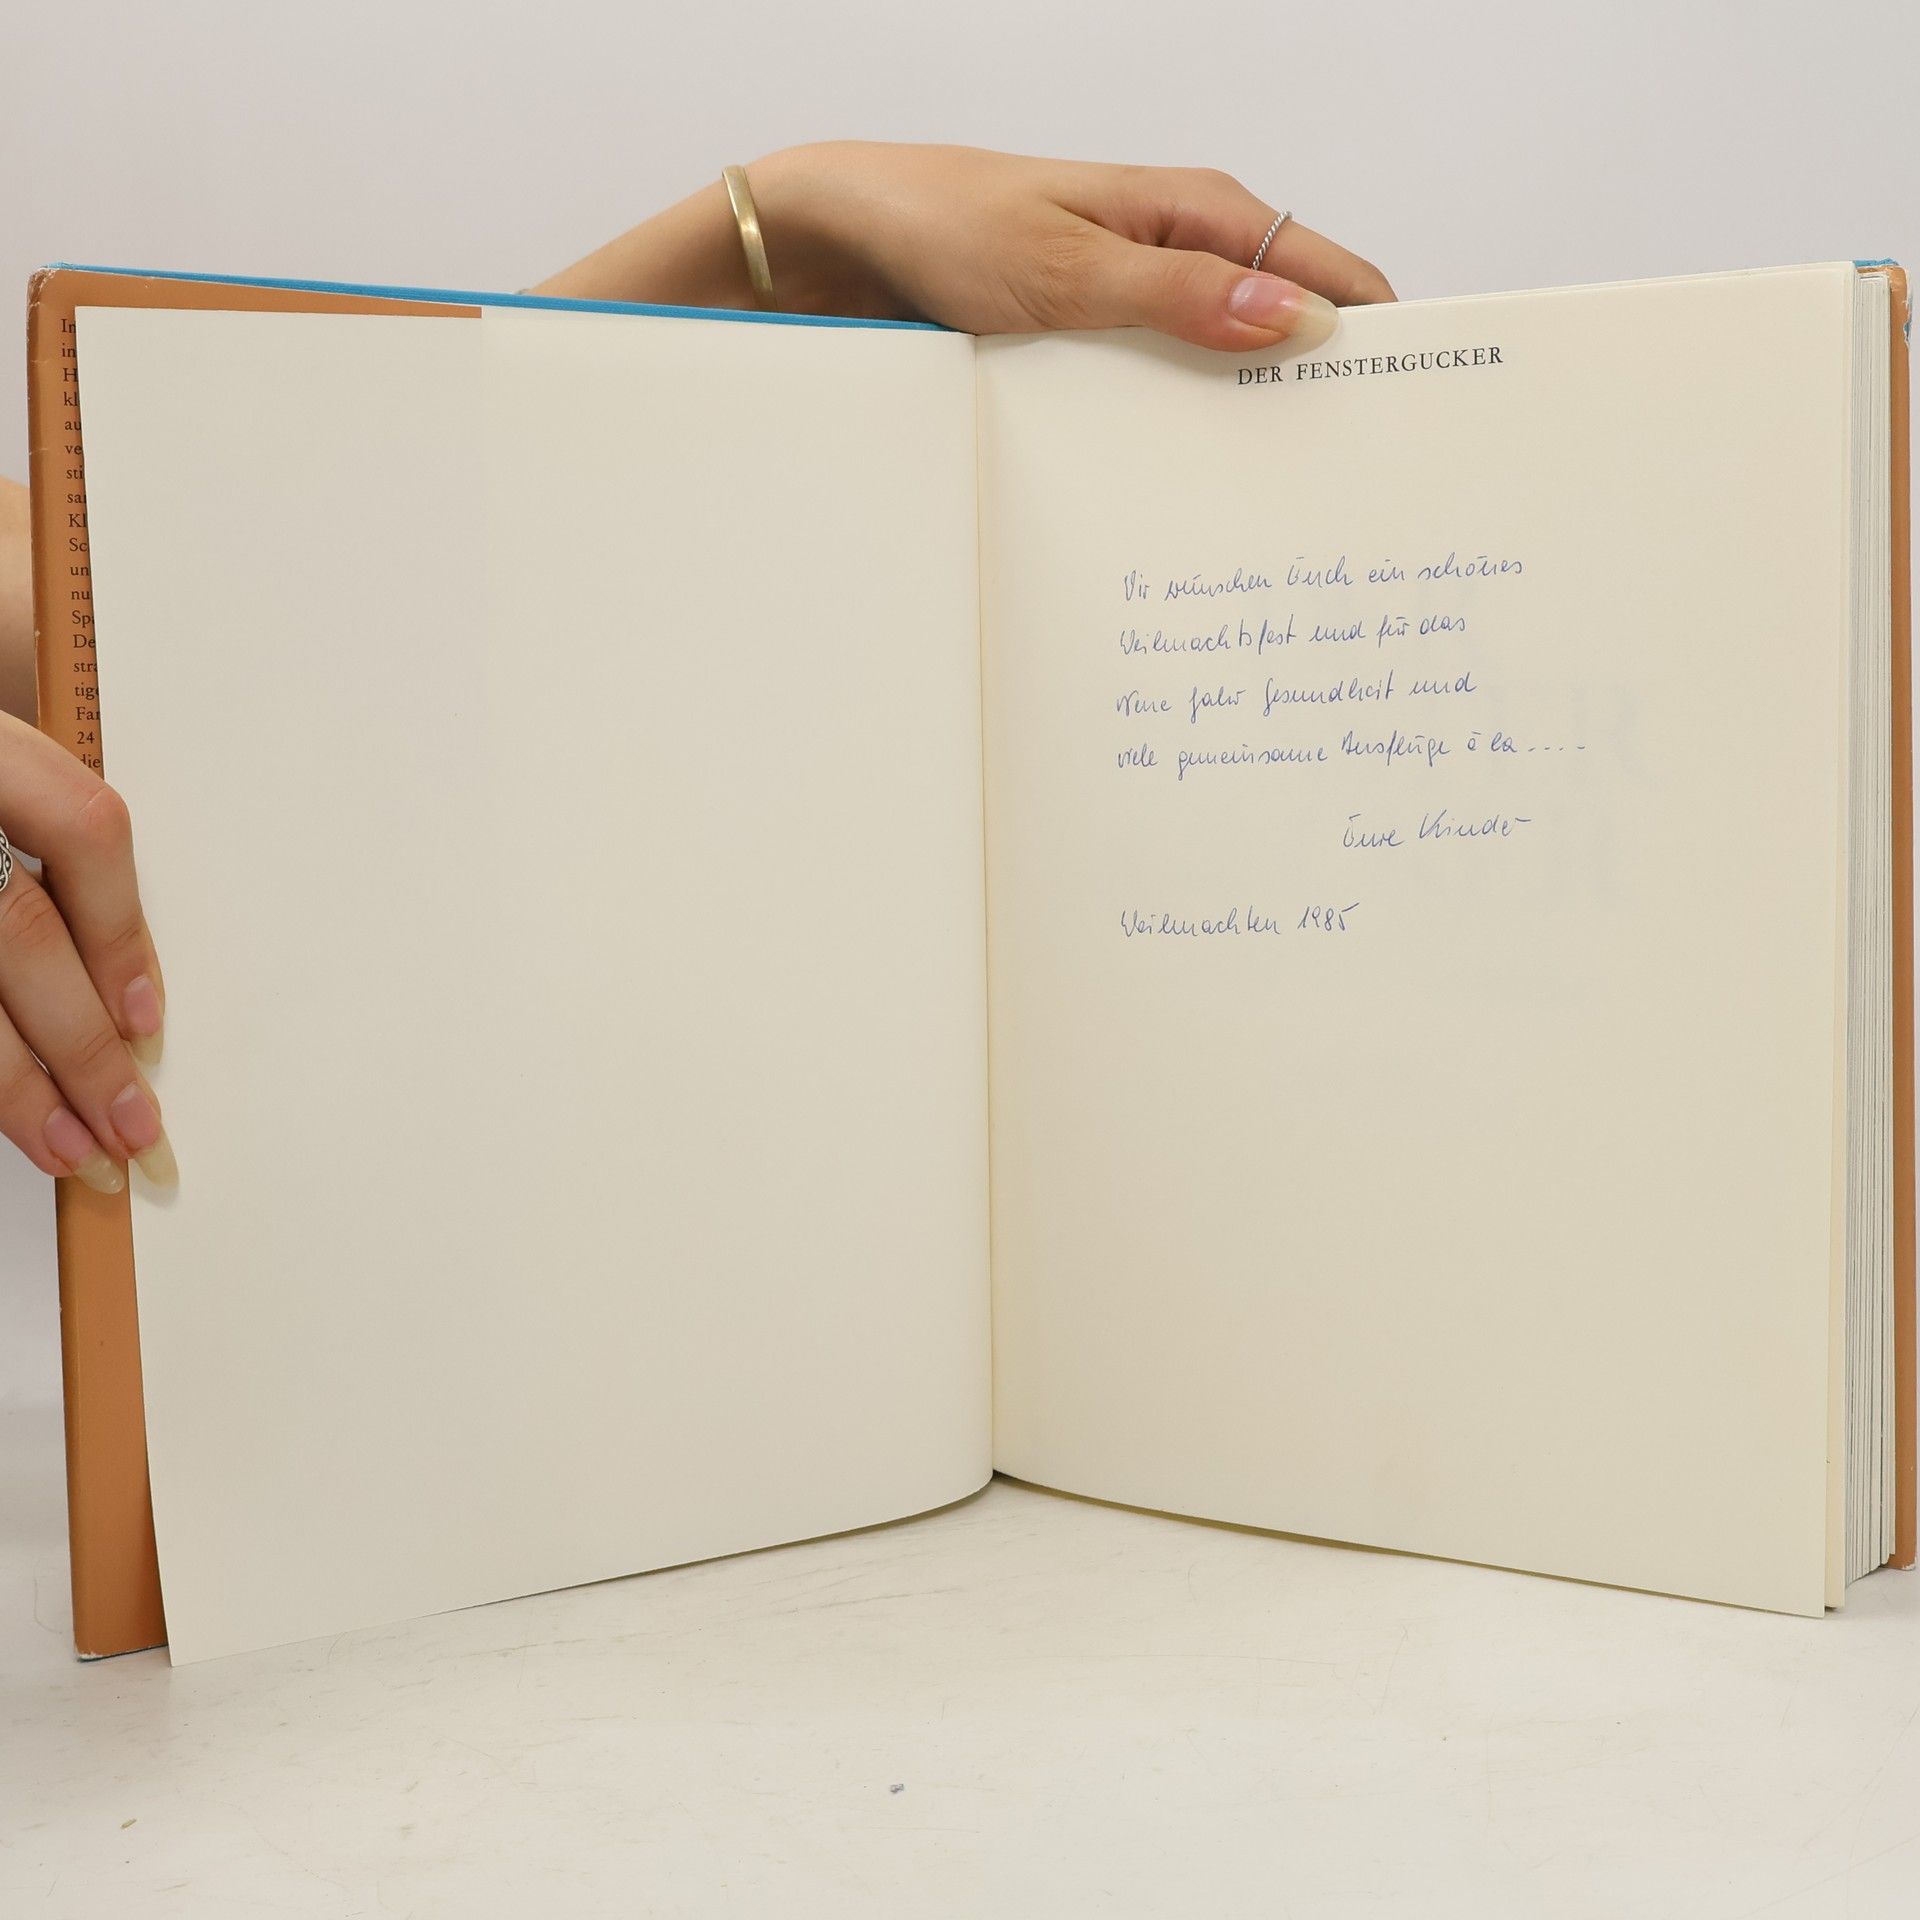 In
in
H
kl
au
ve
sti
sa
Kl
Sc
un
nu
Sp
De
stra
tig
Far
24
die
DER FENSTERGUCKER
Wir wünschen Euch ein schönes
Weihnachtsfest und für das
Neue Jahr Gesundheit und
viele gemeinsame Ausflüge à la ....
Eure Kinder
Weihnachten 1985